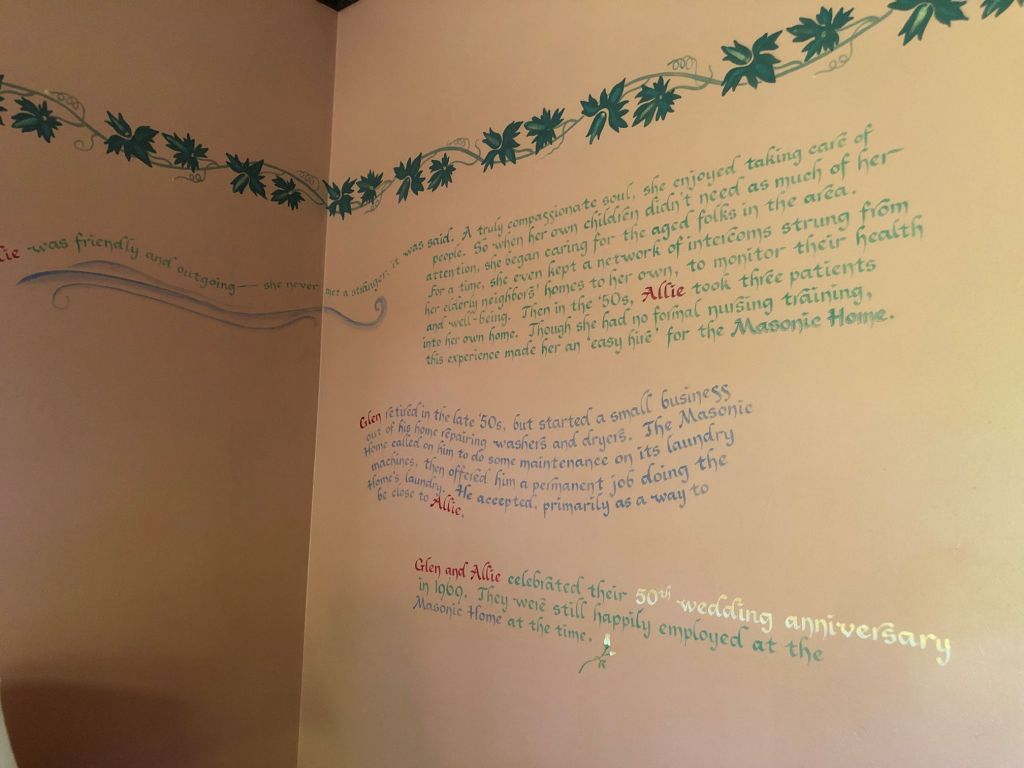 lie was friendly and outgoing — she never met a stranger, it was said. A truly compassionate soul, she enjoyed taking care of
people. So when her own children didn't need as much of her
attention, she began caring for the aged folks in the area.
For a time, she even kept a network of intercoms strung from
her elderly neighbors' homes to her own, to monitor their health
and well-being. Then in the '50s, Allie took three patients
into her own home. Though she had no formal nursing training,
this experience made her an 'easy hire' for the Masonic Home.
Glen retired in the late '50s, but started a small business
out of his home repairing washers and dryers. The Masonic
Home called on him to do some maintenance on its laundry
machines, then offered him a permanent job doing the
Home's laundry. He accepted, primarily as a way to
be close to Allie.
Glen and Allie celebrated their 50th wedding anniversary
in 1969. They were still happily employed at the
Masonic Home at the time.